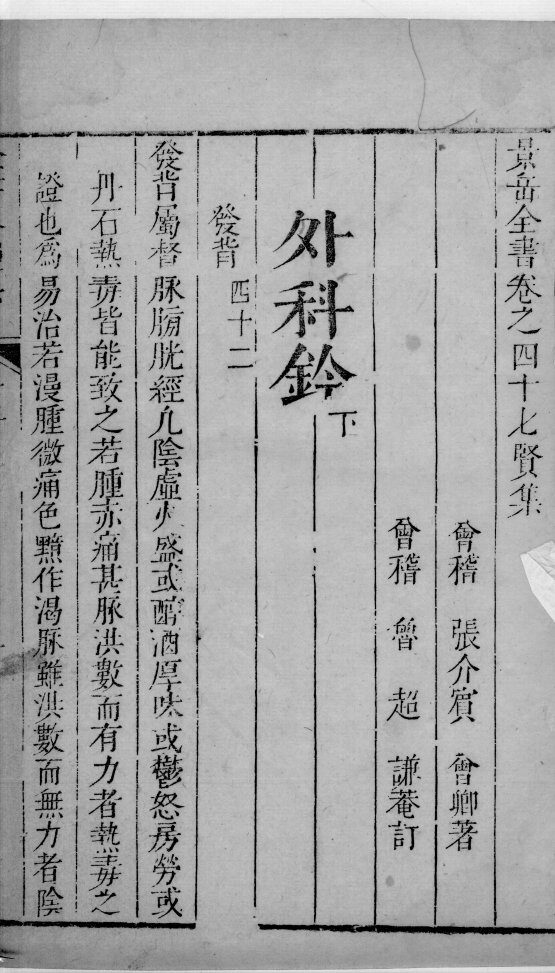 景岳全書卷之四十七賢集
會稽　張介賓　會卿著
會稽　魯　超　謙菴訂
外科鈐下
發背四十二
發背屬督脉膀胱經凢陰虛火盛或醇酒厚味或鬱怒房勞或
丹石熱毒皆能致之若腫赤痛甚脉洪數而有力者熱毒之
證也爲易治若漫腫微痛色黯作渴脉雖洪數而無力者陰